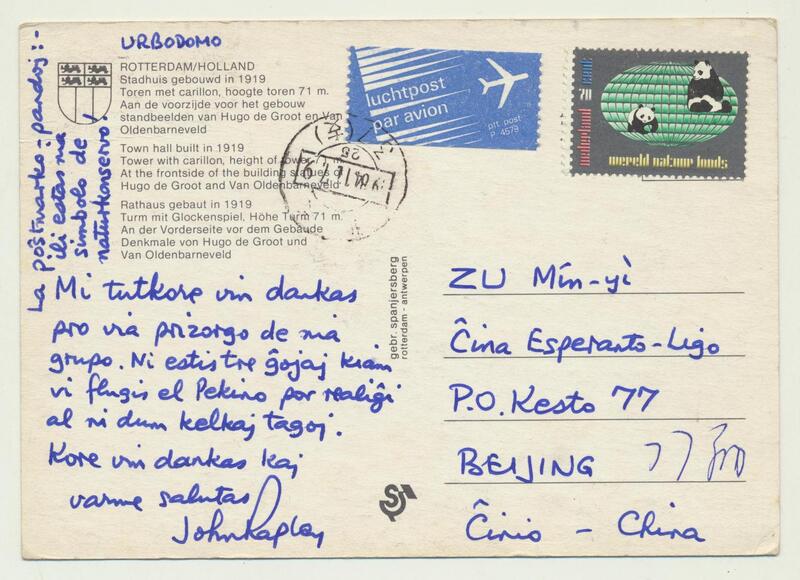 URBODOMO
ROTTERDAM/HOLLAND
Stadhuis gebouwd in 1919
Toren met carillon, hoogte toren 71 m.
Aan de voorzijde voor het gebouw
standbeelden van Hugo de Groot en Van
Oldenbarneveld
Town hall built in 1919
Tower with carillon, height of tower 71 m.
At the frontside of the building statues of
Hugo de Groot and Van Oldenbarneveld
Rathaus gebaut in 1919
Turm mit Glockenspiel, Höhe Turm 71 m.
An der Vorderseite vor dem Gebäude
Denkmale von Hugo de Groot und
Van Oldenbarneveld
La poŝtmarko: pandoj:-
ili estas ma
simbolo de
naturkonservo!
Mi tutkore vin dankas
pro via prizorgo de nia
grupo. Ni estis tre ĝojaj kiam
vi flugis el Pekino por realiĝi
al ni dum kelkaj tagoj.
Kore vin dankas kaj
varme salutas
John Rapley
luchtpost
par avion
ptt post
P 4579
nederland
70 cent
wereld natuur fonds
25
gebr. spanjersberg
rotterdam - antwerpen
ZU Mín-yì
Ĉina Esperanto-Ligo
P.O. Kesto 77
BEIJING
77
Ĉinio - China